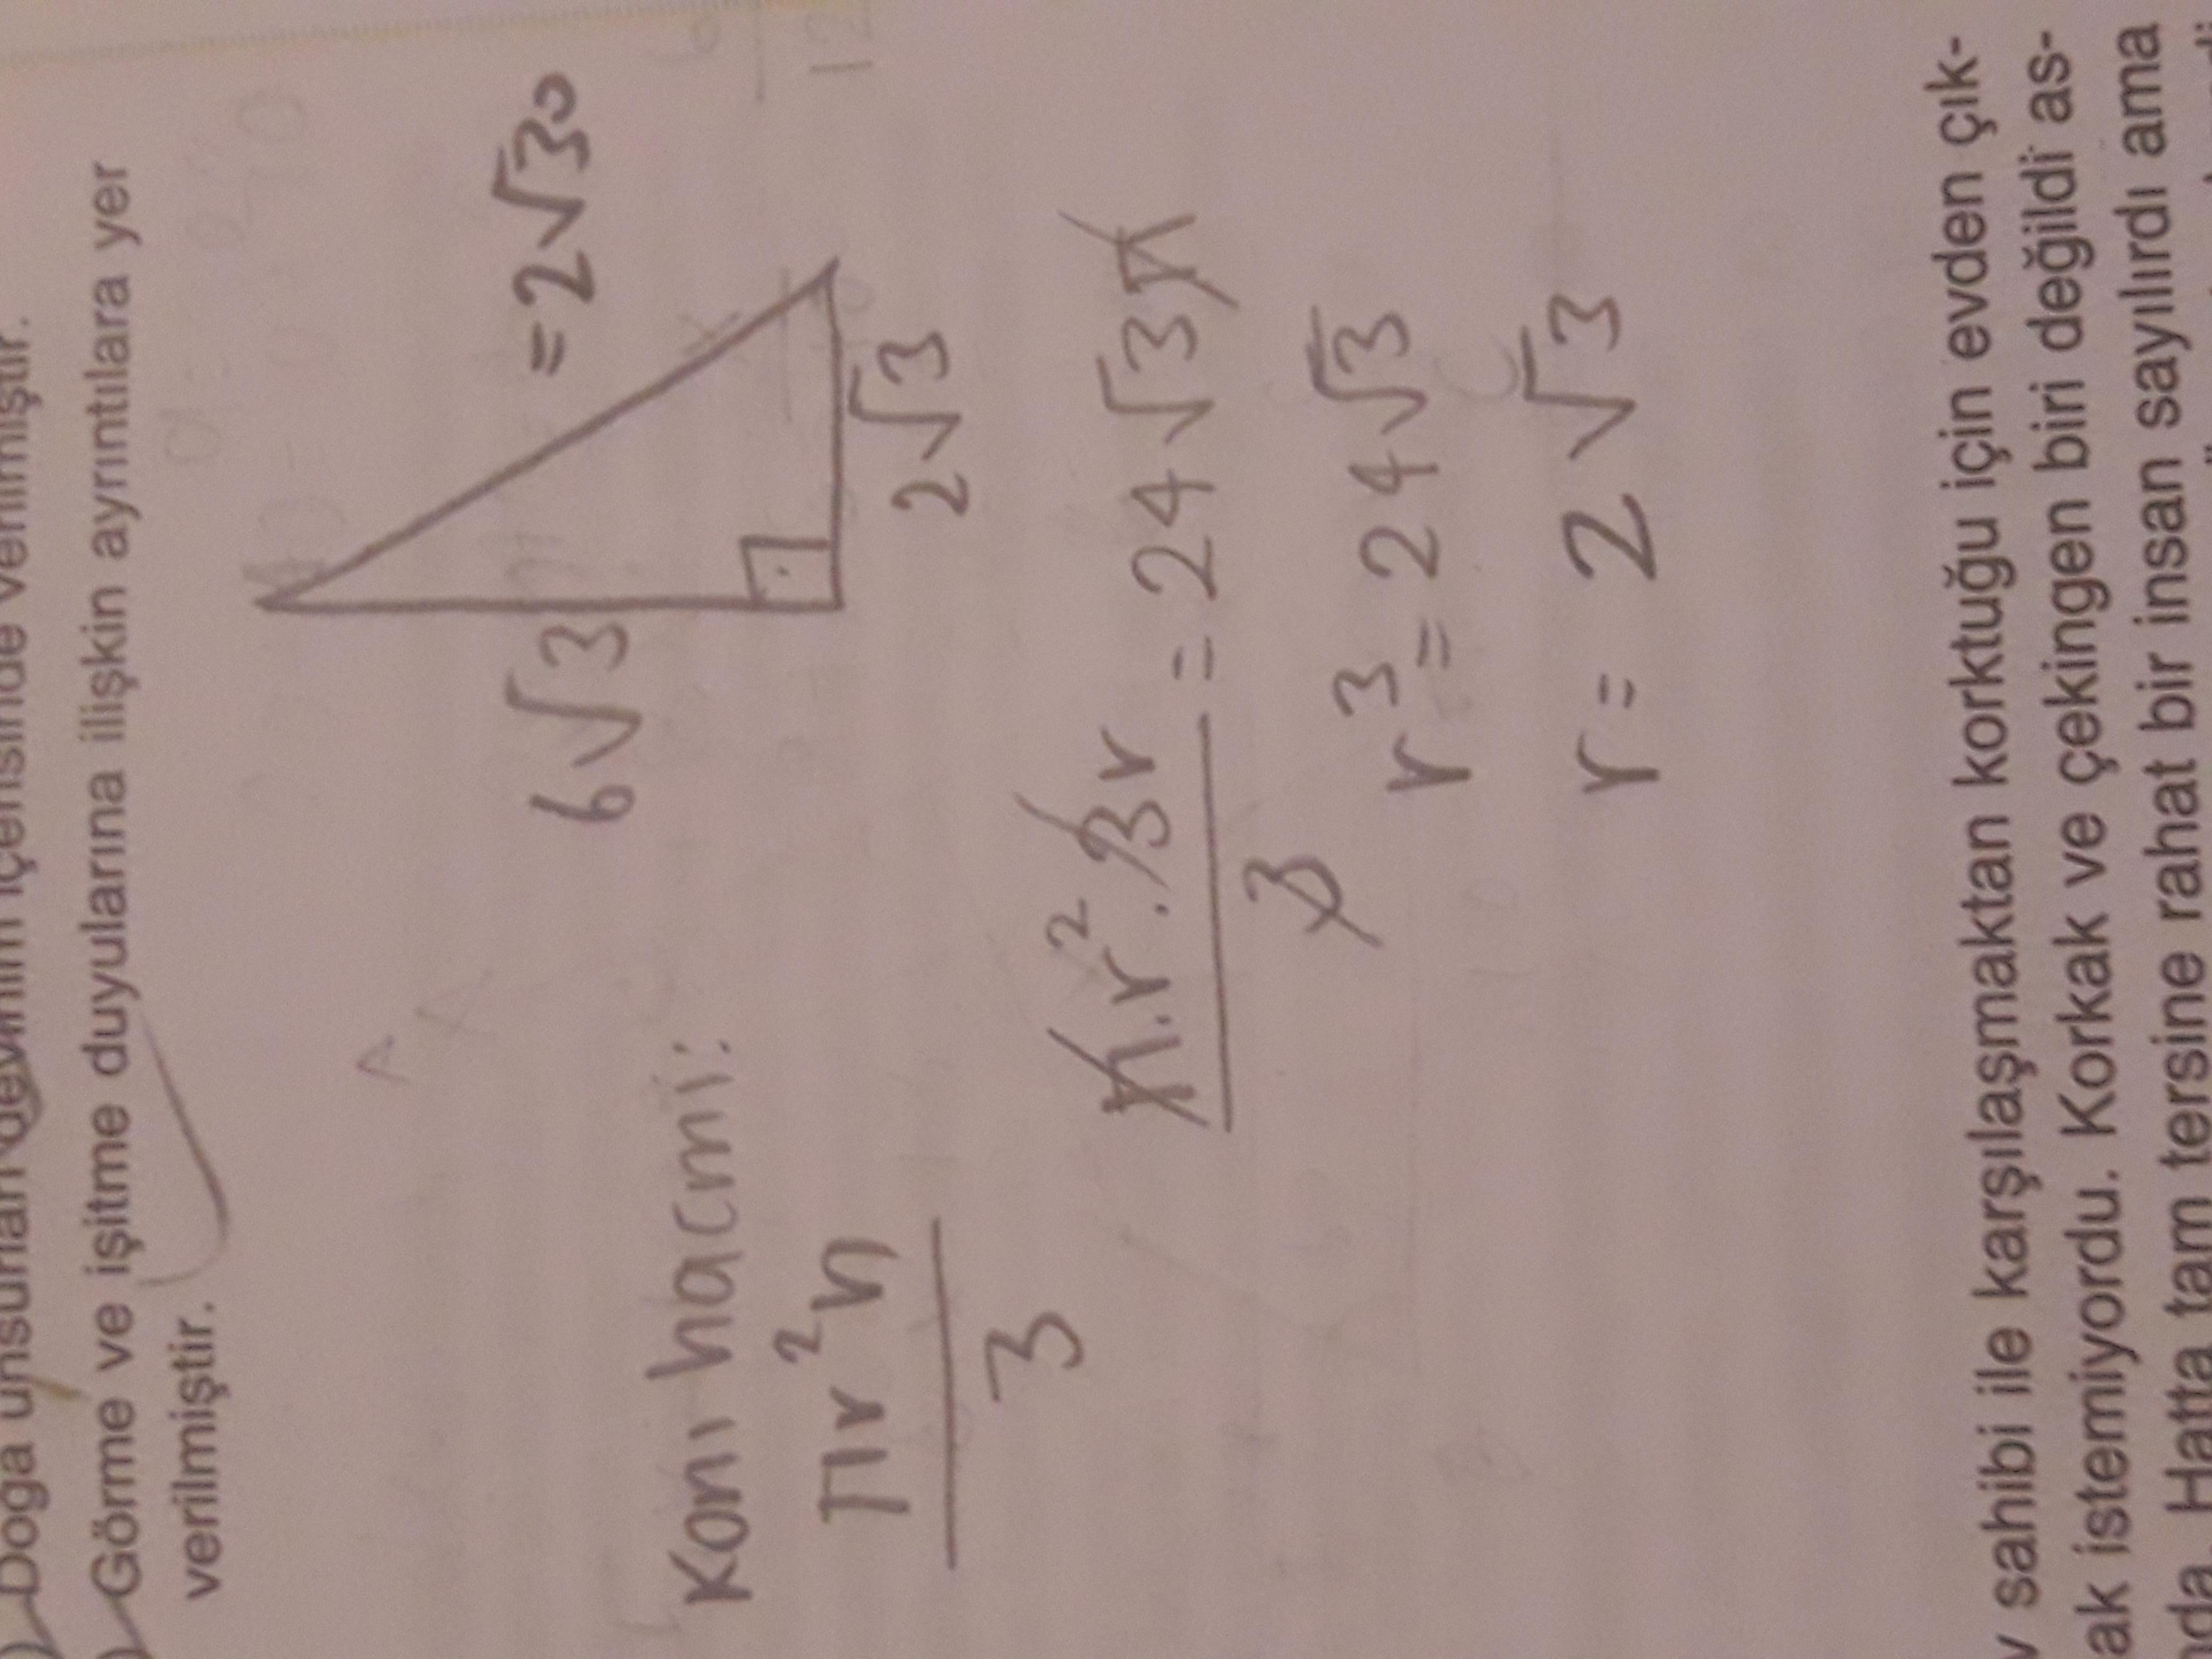 Doğa unsurları devinim içerisinde verilmiştir.
Görme ve işitme duyularına ilişkin ayrıntılara yer
verilmiştir.
= 2√30
6√3
2√3
Koni hacmi:
πr²h
3
π.r².3r = 24√3π
3
r³ = 24√3
r = 2√3
sahibi ile karşılaşmaktan korktuğu için evden çık-
ak istemiyordu. Korkak ve çekingen biri değildi as-
da. Hatta tam tersine rahat bir insan sayılırdı ama